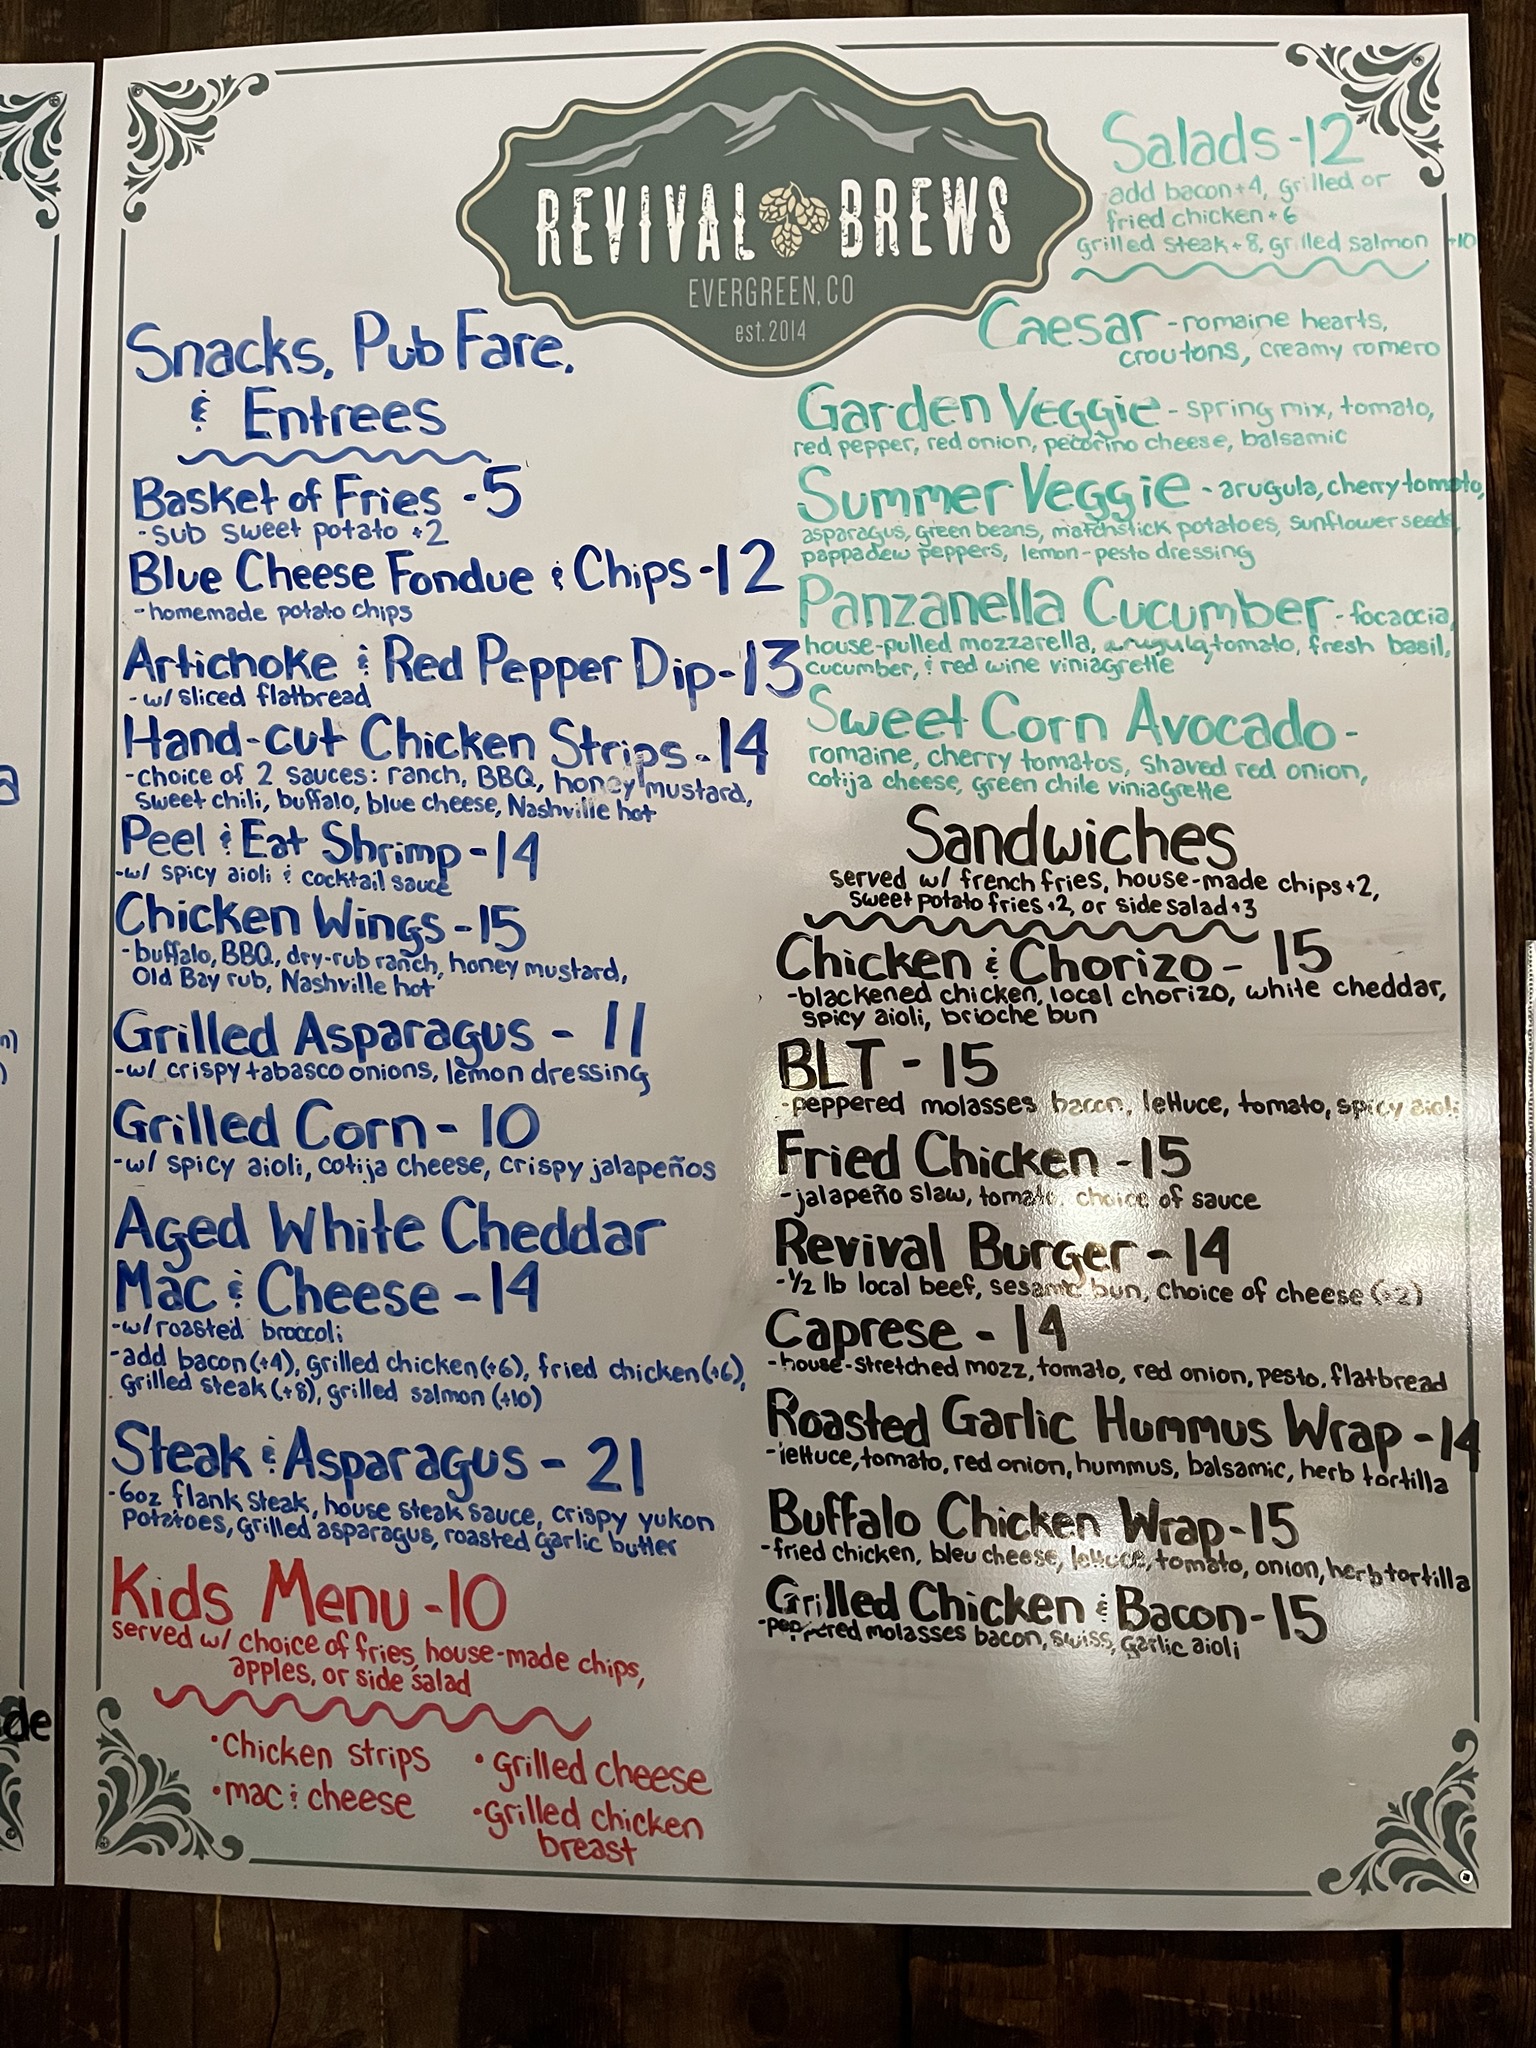 REVIVAL BREWS
EVERGREEN, CO
est. 2014
Snacks, Pub Fare,
& Entrees
Basket of Fries - 5
- sub sweet potato +2
Blue Cheese Fondue & Chips - 12
- homemade potato chips
Artichoke & Red Pepper Dip - 13
- w/ sliced flatbread
Hand-cut Chicken Strips - 14
- choice of 2 sauces: ranch, BBQ, honey mustard,
sweet chili, buffalo, blue cheese, Nashville hot
Peel & Eat Shrimp - 14
- w/ spicy aioli & cocktail sauce
Chicken Wings - 15
- buffalo, BBQ, dry-rub ranch, honey mustard,
Old Bay rub, Nashville hot
Grilled Asparagus - 11
- w/ crispy tabasco onions, lemon dressing
Grilled Corn - 10
- w/ spicy aioli, cotija cheese, crispy jalapeños
Aged White Cheddar
Mac & Cheese - 14
- w/ roasted broccoli
- add bacon (+4), grilled chicken (+6), fried chicken (+6),
grilled steak (+8), grilled salmon (+10)
Steak & Asparagus - 21
- 6oz flank steak, house steak sauce, crispy yukon
potatoes, grilled asparagus, roasted garlic butter
Kids Menu - 10
served w/ choice of fries, house-made chips,
apples, or side salad
• chicken strips
• mac & cheese
• grilled cheese
• grilled chicken
breast
Salads - 12
add bacon +4, grilled or
fried chicken +6
grilled steak +8, grilled salmon +10
Caesar - romaine hearts,
croutons, creamy romero
Garden Veggie - spring mix, tomato,
red pepper, red onion, pecorino cheese, balsamic
Summer Veggie - arugula, cherry tomato,
asparagus, green beans, matchstick potatoes, sunflower seeds,
pappadew peppers, lemon-pesto dressing
Panzanella Cucumber - focaccia,
house-pulled mozzarella, arugula, tomato, fresh basil,
cucumber, & red wine viniagrette
Sweet Corn Avocado -
romaine, cherry tomatos, shaved red onion,
cotija cheese, green chile viniagrette
Sandwiches
served w/ french fries, house-made chips +2,
sweet potato fries +2, or side salad +3
Chicken & Chorizo - 15
- blackened chicken, local chorizo, white cheddar,
spicy aioli, brioche bun
BLT - 15
- peppered molasses bacon, lettuce, tomato, spicy aioli
Fried Chicken - 15
- jalapeño slaw, tomato, choice of sauce
Revival Burger - 14
- 1/2 lb local beef, sesame bun, choice of cheese (+2)
Caprese - 14
- house-stretched mozz, tomato, red onion, pesto, flatbread
Roasted Garlic Hummus Wrap - 14
- lettuce, tomato, red onion, hummus, balsamic, herb tortilla
Buffalo Chicken Wrap - 15
- fried chicken, bleu cheese, lettuce, tomato, onion, herb tortilla
Grilled Chicken & Bacon - 15
- peppered molasses bacon, swiss, garlic aioli